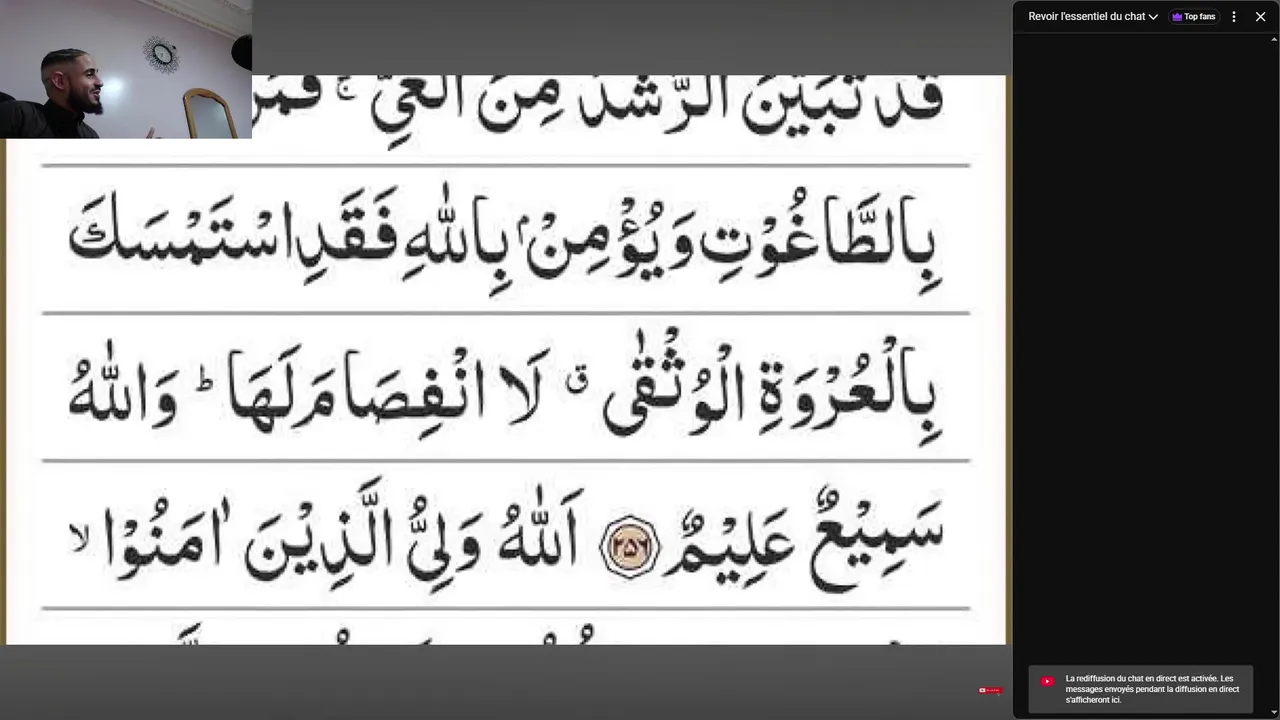 قَدْ تَّبَيَّنَ الرُّشْدُ مِنَ الْغَيِّ ۚ فَمَنْ
بِالطَّاغُوْتِ وَيُؤْمِنْۢ بِاللّٰهِ فَقَدِ اسْتَمْسَكَ
بِالْعُرْوَةِ الْوُثْقٰى ق لَا انْفِصَامَ لَهَا ؕ وَاللّٰهُ
سَمِيْعٌ عَلِيْمٌ ۲۵۶ اَللّٰهُ وَلِيُّ الَّذِيْنَ اٰمَنُوْا ۙ
Revoir l'essentiel du chat
Top fans
La rediffusion du chat en direct est activée. Les
messages envoyés pendant la diffusion en direct
s'afficheront ici.